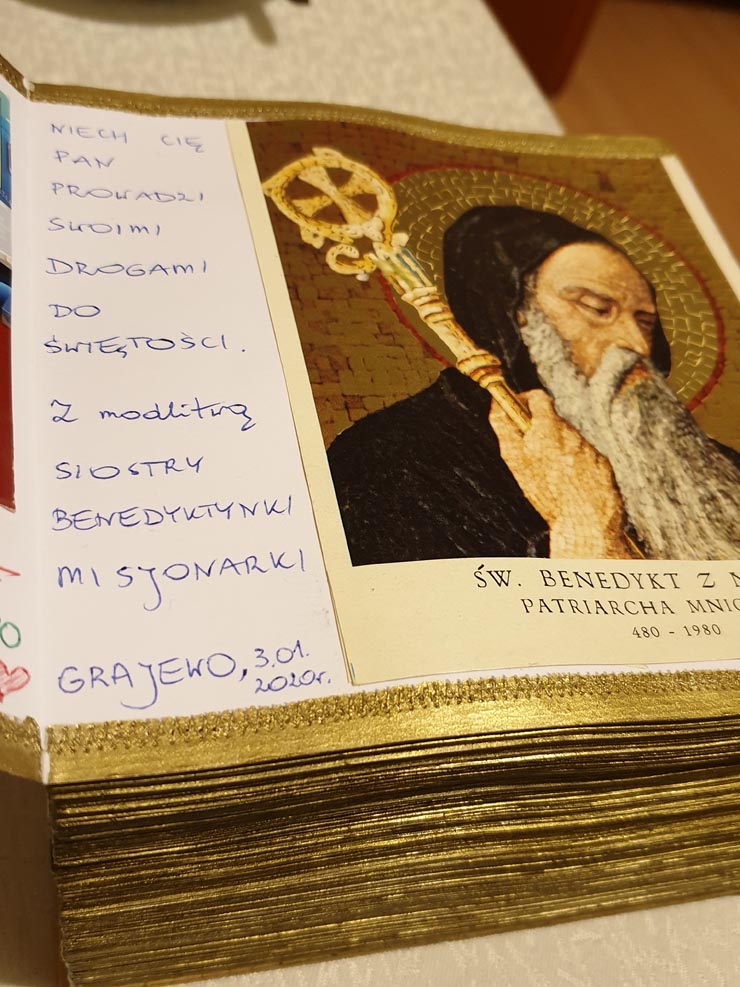 NIECH CIĘ
PAN
PROWADZI
SWOIMI
DROGAMI
DO
ŚWIĘTOŚCI.
Z modlitwą
SIOSTRY
BENEDYKTYNKI
MISJONARKI
GRAJEWO, 3.01.
2020r.
ŚW. BENEDYKT Z
PATRIARCHA
480 - 1980